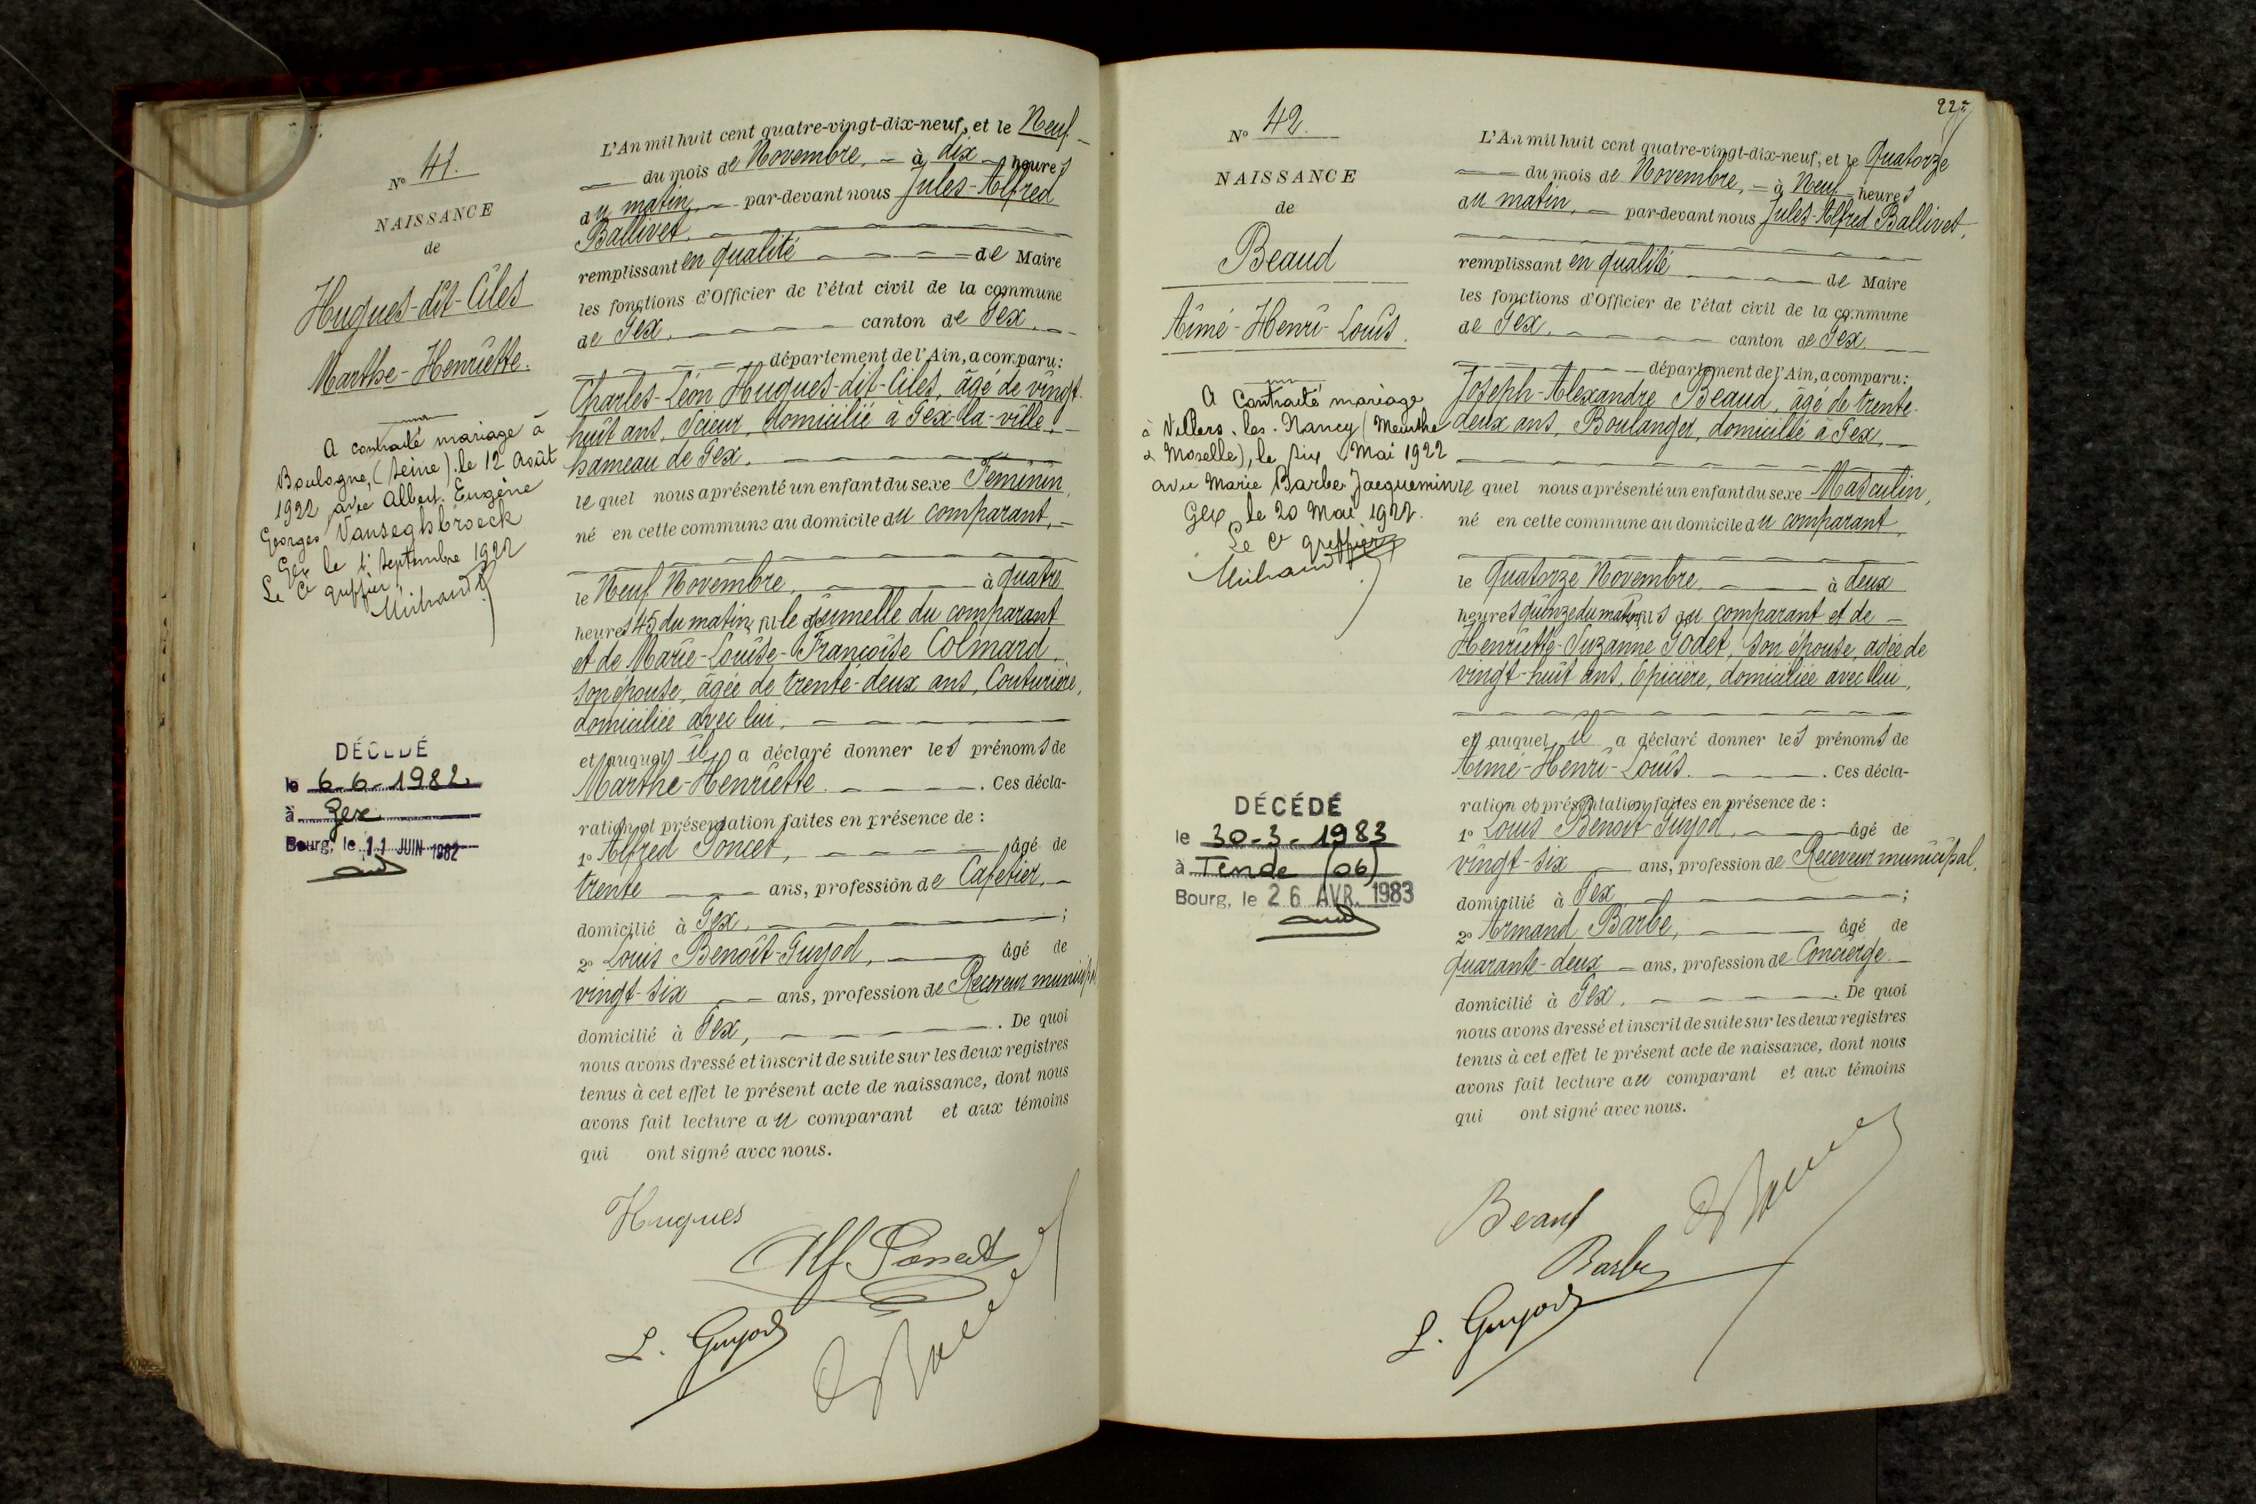 N° 41.
NAISSANCE
de
Hugues-dit-Ciles
Marthe-Henriette.
A contracté mariage à
Boulogne, (Seine) le 12 Août
1922 avec Albert Eugène
Georges Vanseghbroeck
Gex le 1er Septembre 1922
Le Cis greffier
DÉCÉDÉ
le 6-6-1982.
à Gex
Bourg, le 11 JUIN 1982
L'An mil huit cent quatre-vingt-dix-neuf, et le Neuf
du mois de Novembre, à dix heures
au matin, par-devant nous Jules-Alfred
Ballivet.
remplissant en qualité de Maire
les fonctions d'Officier de l'état civil de la commune
de Gex, canton de Gex
département de l'Ain, a comparu:
Charles-Léon Hugues-dit-Ciles, âgé de vingt-
huit ans, Scieur, domicilié à Gex-la-ville,
hameau de Gex.
lequel nous a présenté un enfant du sexe Féminin,
né en cette commune au domicile du comparant,
le Neuf Novembre, à quatre
heures 45 du matin, fille jumelle du comparant
et de Marie-Louise-Françoise Colmard,
son épouse, âgée de trente-deux ans, Couturière,
domiciliée avec lui,
et auquel il a déclaré donner les prénoms de
Marthe-Henriette. Ces décla-
ration et présentation faites en présence de :
1° Alfred Poncet, âgé de
trente ans, profession de Cafetier,
domicilié à Gex, ;
2° Louis Benoît-Guyod, âgé de
vingt-six ans, profession de Receveur municipal
domicilié à Gex, . De quoi
nous avons dressé et inscrit de suite sur les deux registres
tenus à cet effet le présent acte de naissance, dont nous
avons fait lecture au comparant et aux témoins
qui ont signé avec nous.
Hugues
Alf Poncet
L. Guyod
227
N° 42.
NAISSANCE
de
Beaud
Aimé-Henri-Louis.
A Contracté mariage
à Villers-les-Nancy (Meurthe
& Moselle), le six Mai 1922
avec Marie Barbe Jacquemin
Gex, le 20 Mai 1922.
Le Cis greffier
DÉCÉDÉ
le 30-3-1983
à Tende (06)
Bourg, le 26 AVR. 1983
L'An mil huit cent quatre-vingt-dix-neuf, et le Quatorze
du mois de Novembre, à Neuf heures
au matin, par-devant nous Jules-Alfred Ballivet.
remplissant en qualité de Maire
les fonctions d'Officier de l'état civil de la commune
de Gex, canton de Gex
département de l'Ain, a comparu:
Joseph-Alexandre Beaud, âgé de trente-
deux ans, Boulanger, domicilié à Gex,
lequel nous a présenté un enfant du sexe Masculin,
né en cette commune au domicile du comparant,
le Quatorze Novembre à deux
heures quinze du matin, fils du comparant et de
Henriette-Suzanne Godet, son épouse, agée de
vingt-huit ans, Epicière, domiciliée avec lui,
et auquel il a déclaré donner les prénoms de
Aimé-Henri-Louis. Ces décla-
ration et présentation faites en présence de :
1° Louis Benoît-Guyod, âgé de
vingt-six ans, profession de Receveur municipal,
domicilié à Gex ;
2° Armand Barbe, âgé de
quarante-deux ans, profession de Concierge
domicilié à Gex, . De quoi
nous avons dressé et inscrit de suite sur les deux registres
tenus à cet effet le présent acte de naissance, dont nous
avons fait lecture au comparant et aux témoins
qui ont signé avec nous.
Beaud
Barbe
L. Guyod